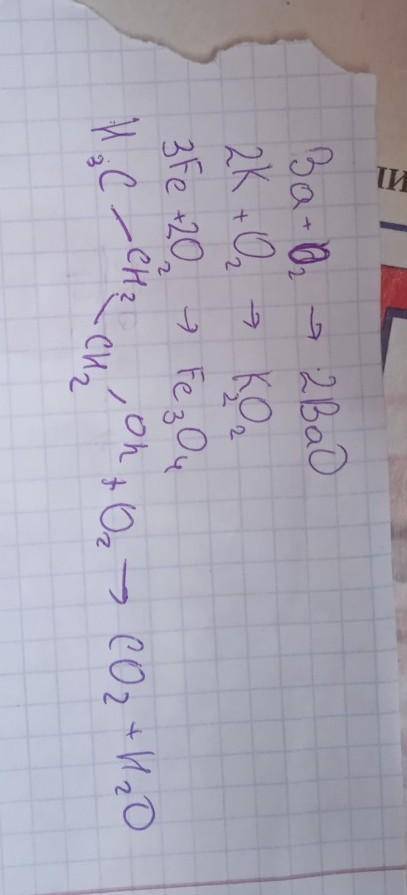 Ba + O₂ → 2BaO
2K + O₂ → K₂O₂
3Fe + 2O₂ → Fe₃O₄
H₃C — CH₂ — CH₂ — Oh + O₂ → CO₂ + H₂O